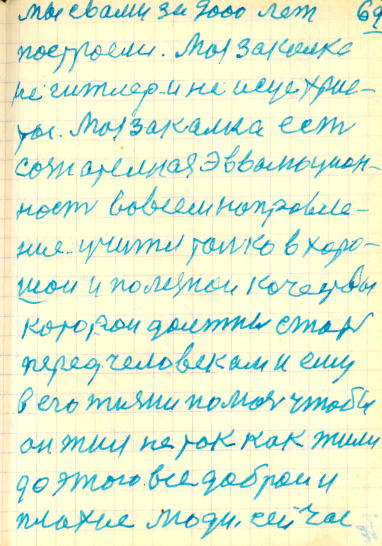 мы свами за 9000 лет 69
построели. Моя закалка
не гитлер и не исус хрис-
тос. Моя закалка есть
созна телная Эвволюцион-
ность вовсем направле-
ние. учити толко в хоро-
шои и полезнои качествы
которои должны стать
перед человекам и ему
в его жизни помоч чтобы
он жил не так как жили
до этого все доброи и
плохие люди. сейчас